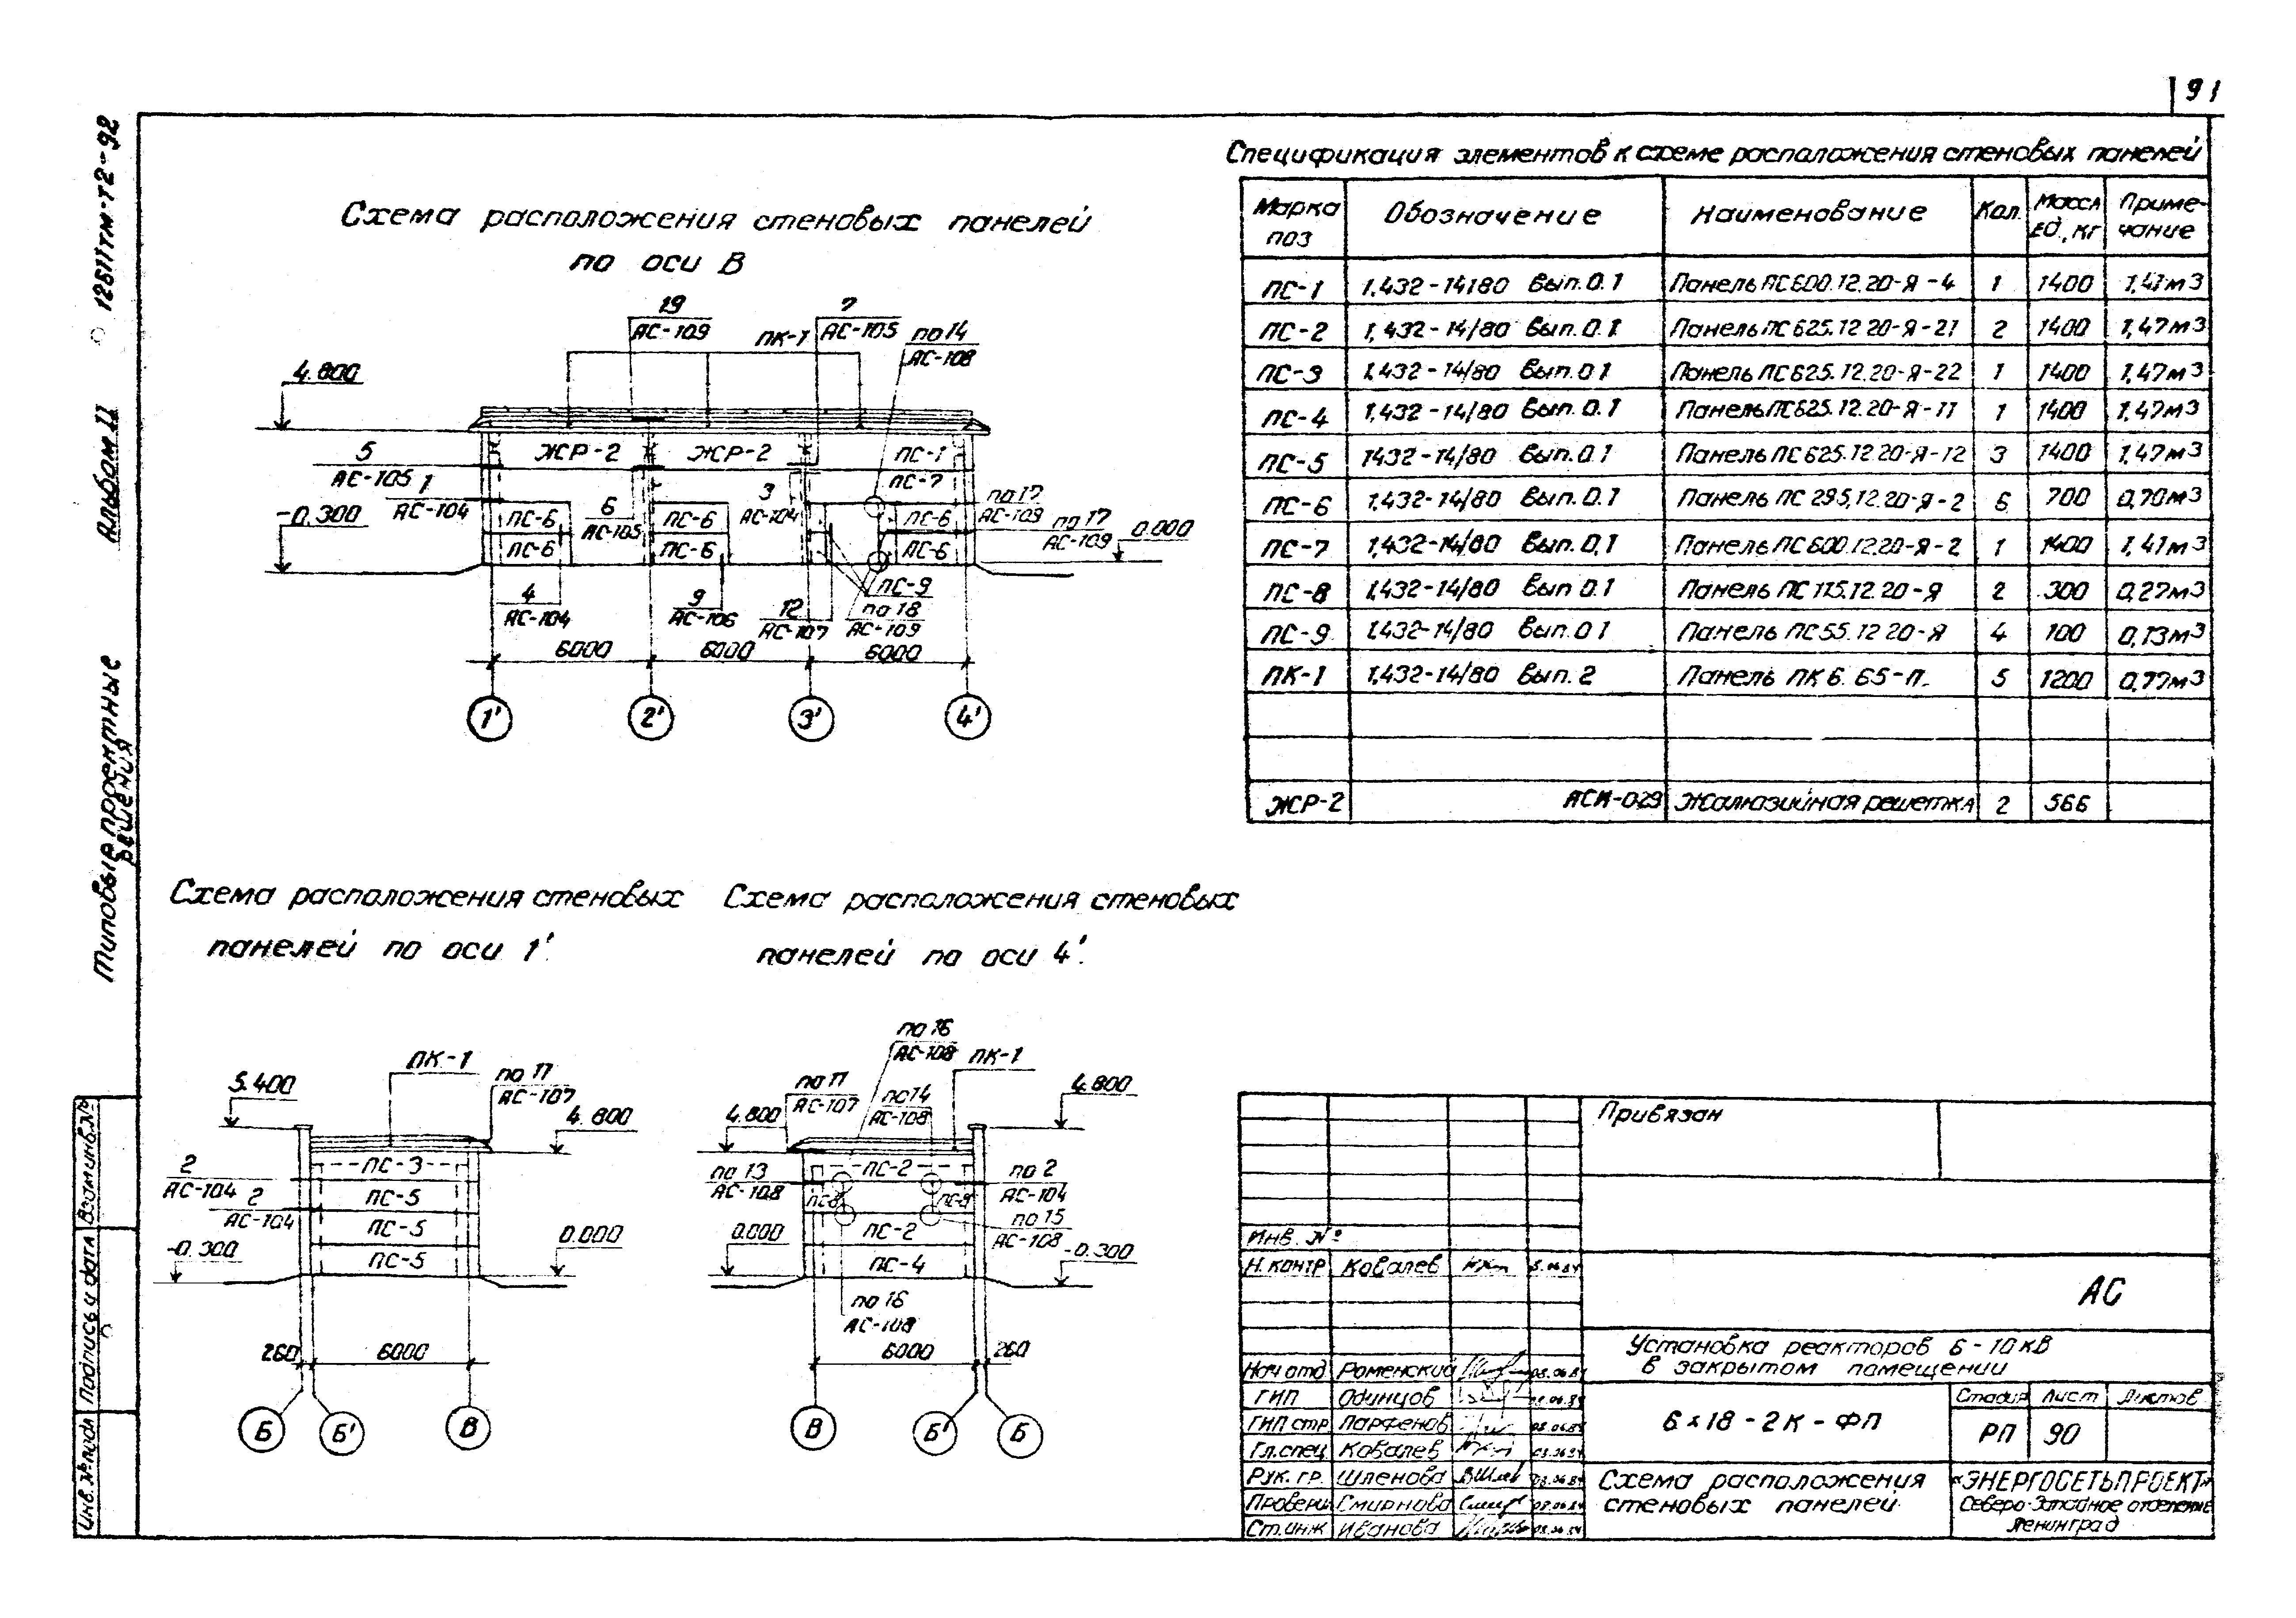 91
12611тм-т2-92
Альбом II
Типовые проектные
решения
Взам.инв.№
Подпись и дата
Инв.№ подл
Схема расположения стеновых панелей
по оси В
19
АС-109
ПК-1
7
АС-105
по 14
АС-108
4.800
ЖР-2
ЖР-2
ПС-1
ПС-7
5
АС-105
1
АС-104
-0.300
ПС-6
ПС-6
6
АС-105
ПС-6
ПС-6
3
АС-104
ПС-6
ПС-6
по 17
АС-109
по 17
АС-109
0.000
4
АС-104
9
АС-106
12
АС-107
ПС-9
по 18
АС-109
6000
6000
6000
1'
2'
3'
4'
Спецификация элементов к схеме расположения стеновых панелей
Марка поз | Обозначение | Наименование | Кол. | Масса ед., кг | Приме-чание
ПС-1 1.432-14180 Вып.0.1 Панель ПС600.12.20-Я-4 1 1400 1,41м3
ПС-2 1.432-14/80 Вып.0.1 Панель ПС625.12 20-Я-21 2 1400 1,47м3
ПС-3 1.432-14/80 Вып.0 1 Панель ПС625.12.20-Я-22 1 1400 1,47м3
ПС-4 1.432-14/80 Вып.0.1 Панель ПС625.12.20-Я-11 1 1400 1,47м3
ПС-5 1432-14/80 Вып.0.1 Панель ПС625.12 20-Я-12 3 1400 1,47м3
ПС-6 1.432-14/80 Вып.0.1 Панель ПС 295,12.20-Я-2 6 700 0,70м3
ПС-7 1,432-14/80 Вып.0,1 Панель ПС600.12.20-Я-2 1 1400 1,41м3
ПС-8 1.432-14/80 Вып 0.1 Панель ПС 115.12.20-Я 2 300 0,27м3
ПС-9 1.432-14/80 Вып.0 1 Панель ПС55.12 20-Я 4 100 0,13м3
ПК-1 1.432-14/80 Вып.2 Панель ПК 6.65-П. 5 1200 0,77м3
ЖР-2 АСИ-029 Жалюзийная решетка 2 566
Схема расположения стеновых
панелей по оси 1'.
ПК-1
по 11
АС-107
5.400
4.800
2
АС-104
2
АС-104
ПС-3
ПС-5
ПС-5
ПС-5
-0.300
0.000
260
6000
Б
Б'
В
Схема расположения стеновых
панелей по оси 4'.
по 16
АС-108
ПК-1
по 11
АС-107
по 14
АС-108
4.800
4.800
по 13
АС-108
ПС-2
ПС-8
ПС-8
ПС-2
ПС-4
по 2
АС-104
по 15
АС-108
0.000
-0.300
по 16
АС-108
6000
260
В
Б'
Б
Привязан
Инв. №
Н.контр Ковалев
АС
Установка реакторов 6-10кВ
в закрытом помещении
Нач отд Роменский 08.06.84
ГИП Одинцов
ГИП стр Парфенов 08.06.84
Гл.спец Ковалев 08.06.84
Рук. гр. Шленова 08.06.84
Провери Смирнова 08.06.84
Ст.инж Иванова 08.06.84
6х18-2К-ФП
Стадия Лист Листов
РП 90
Схема расположения
стеновых панелей.
«ЭНЕРГОСЕТЬПРОЕКТ»
Северо-Западное отделение
Ленинград